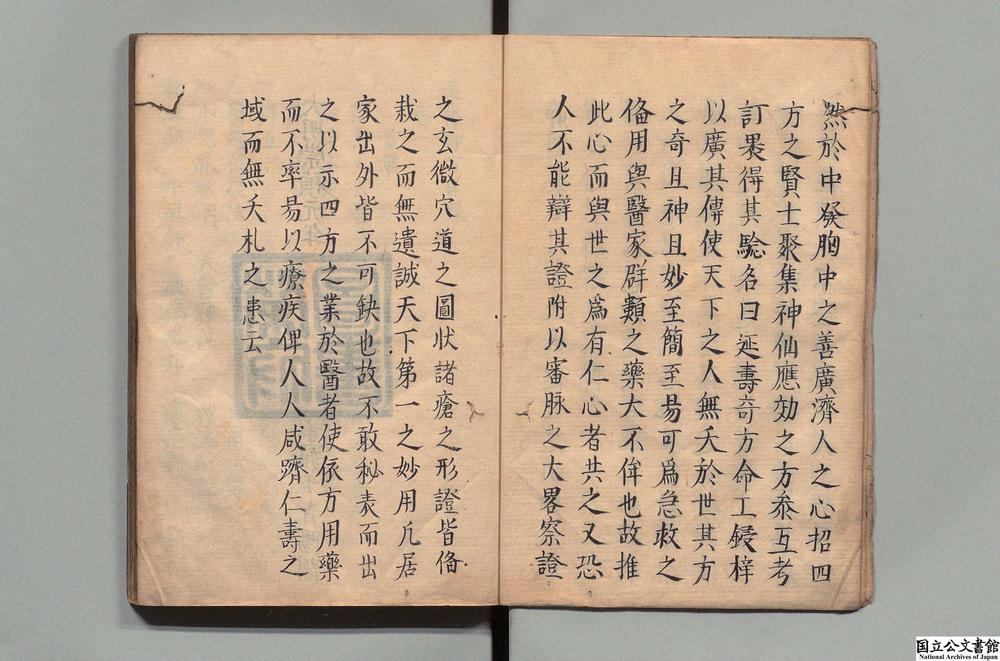 然於中發胸中之善廣濟人之心招四
方之賢士聚集神仙應効之方叅互考
訂累得其驗名曰延壽奇方命工鋟梓
以廣其傳使天下之人無夭於世其方
之奇且神且妙至簡至易可爲急救之
俻用與醫家群類之藥大不侔也故推
此心而與世之爲有仁心者共之又恐
人不能辯其證附以審脉之大畧察證
之玄微穴道之圖狀諸瘡之形證皆俻
栽之而無遺誠天下第一之妙用凢居
家出外皆不可缺也故不敢秘表而出
之以示四方之業於醫者使依方用藥
而不率昜以療疾俾人人咸躋仁壽之
域而無夭札之患云
国立公文書館
National Archives of Japan